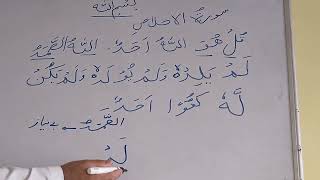 بسم اللہ
سورۃ الاخلاص
قُلْ هُوَ اللّٰهُ اَحَدٌ۔ اَللّٰهُ الصَّمَدُ
لَمْ يَلِدْ وَلَمْ يُوْلَدْ وَلَمْ يَكُنْ
لَّهٗ كُفُوًا اَحَدٌ
الصَّمَدُ بے نیاز
لَمْ